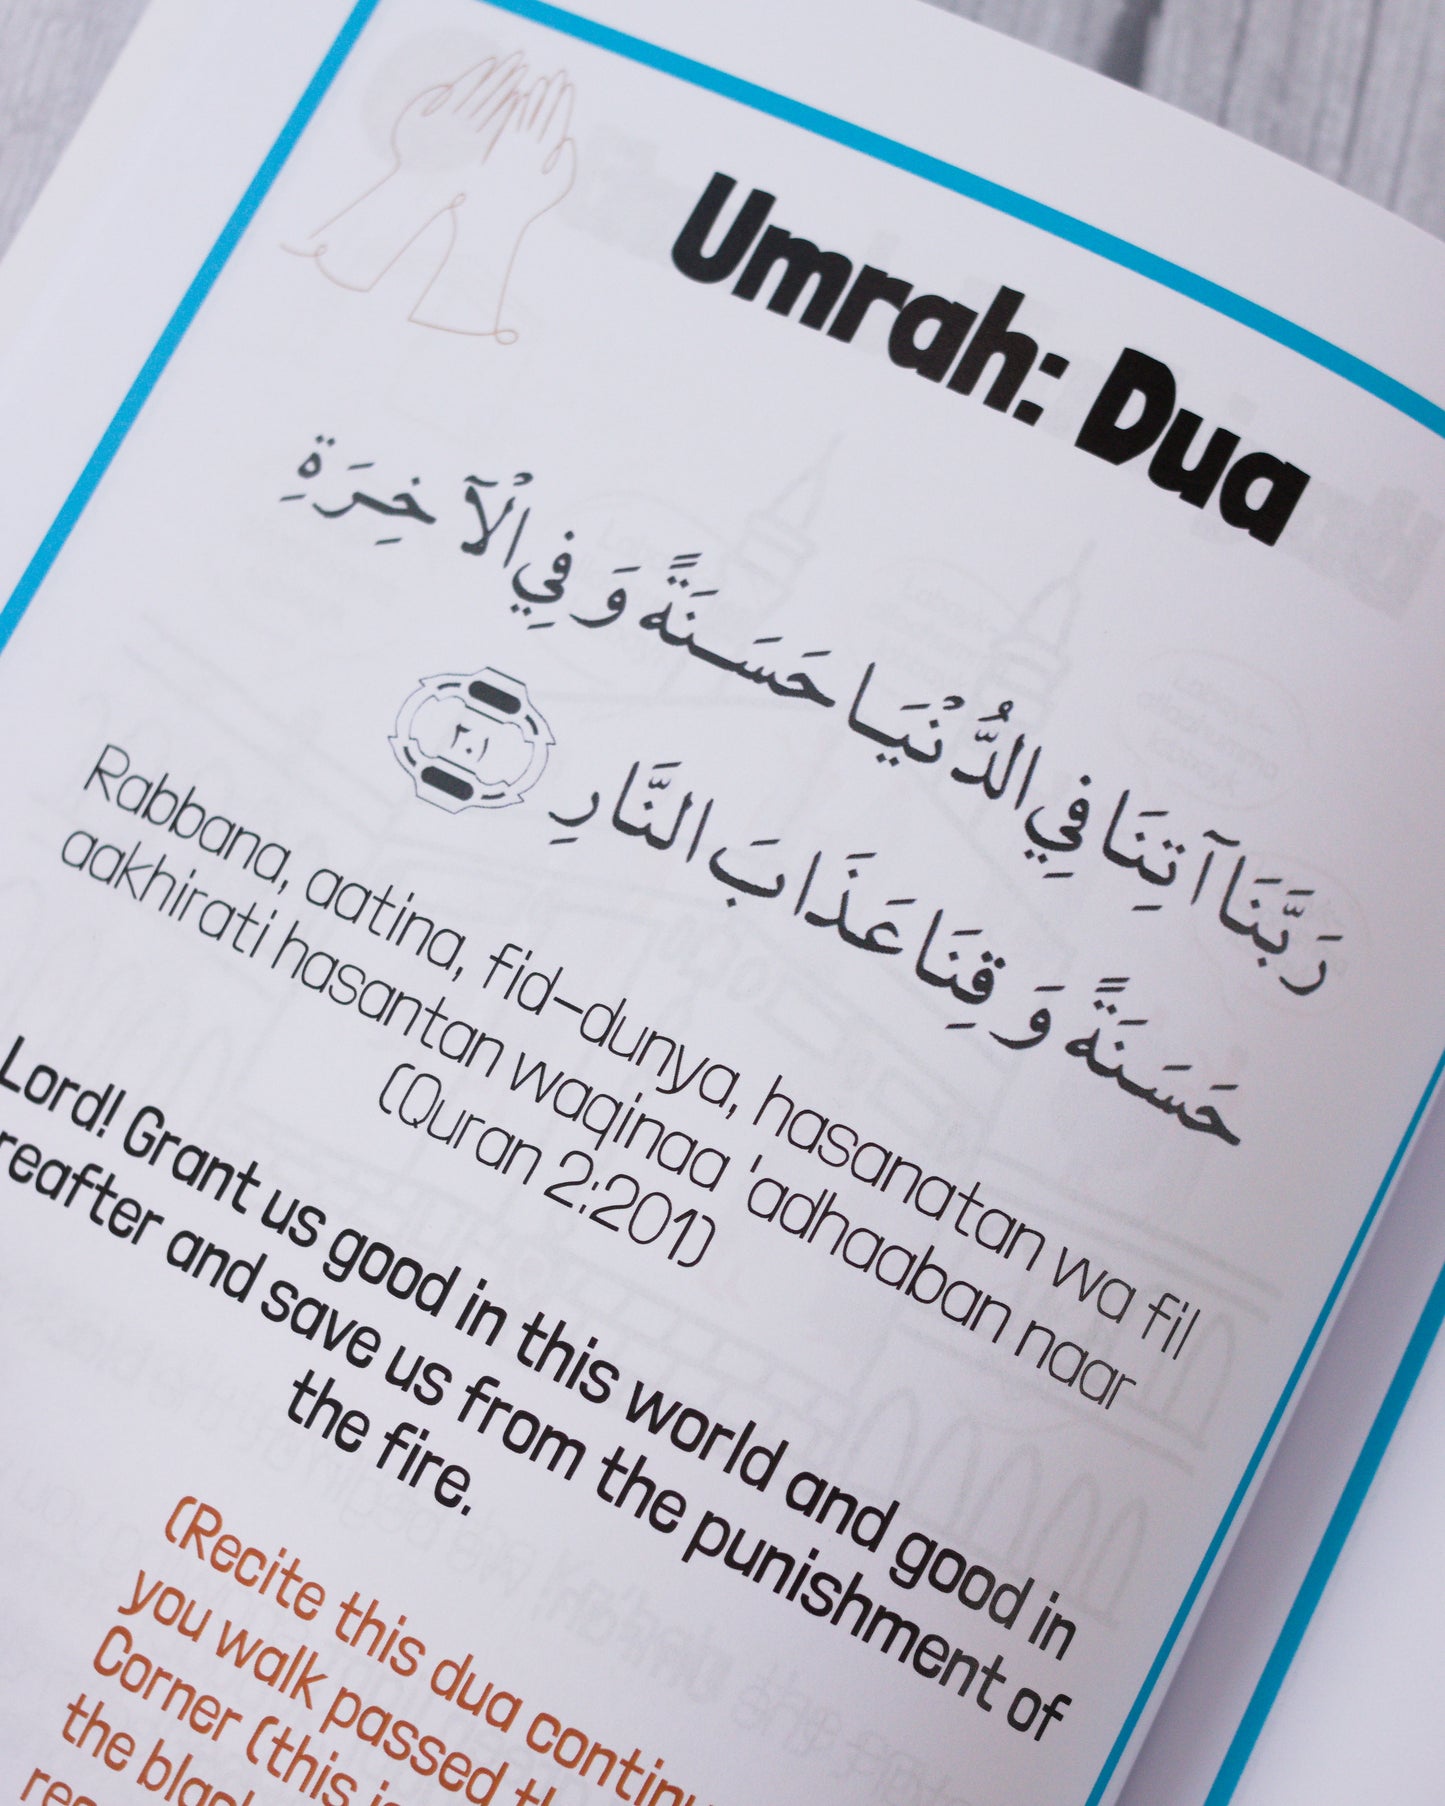 Umrah: Dua
رَبَّنَا آتِنَا فِي الدُّنْيَا حَسَنَةً وَفِي الْآخِرَةِ
حَسَنَةً وَقِنَا عَذَابَ النَّارِ ٢٠١
Rabbana, aatina, fid-dunya, hasanatan wa fil
aakhirati hasantan waqinaa 'adhaaban naar
(Quran 2:201)
Lord! Grant us good in this world and good in
and save us from the punishment of
the fire.
(Recite this dua
you walk passed
Corner (this
the